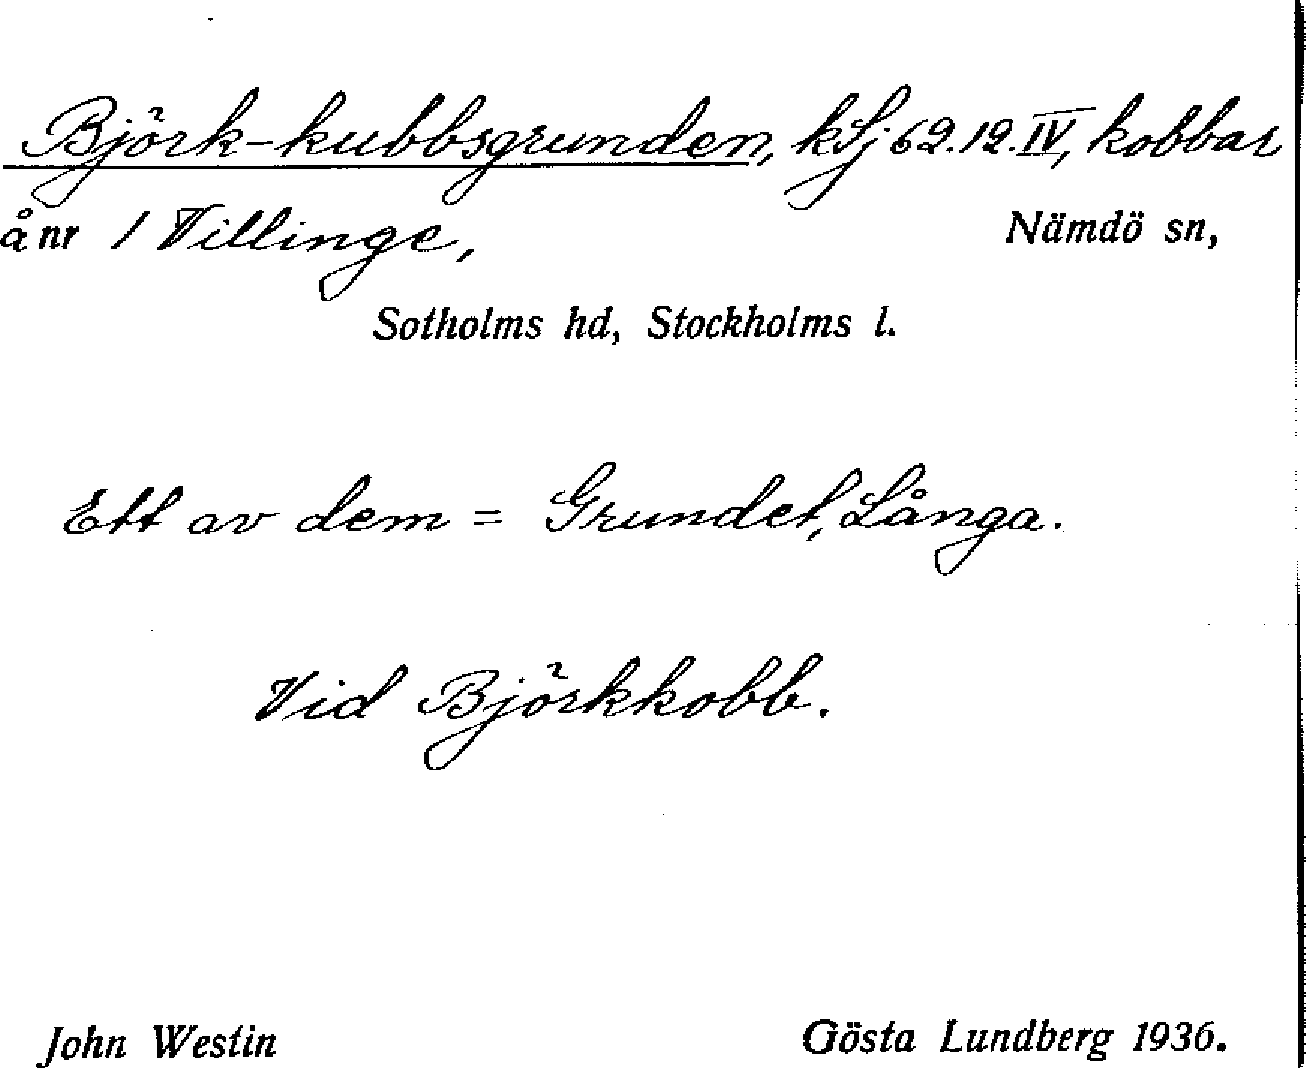 Björk-kubbsgrunden, kSj. 62.12.IV, kobbar
å nr 1 Villinge, Nämdö sn,
Sotholms hd, Stockholms l.
Ett av dem = Grundet, Långa.
Vid Björkkobb.
John Westin Gösta Lundberg 1936.